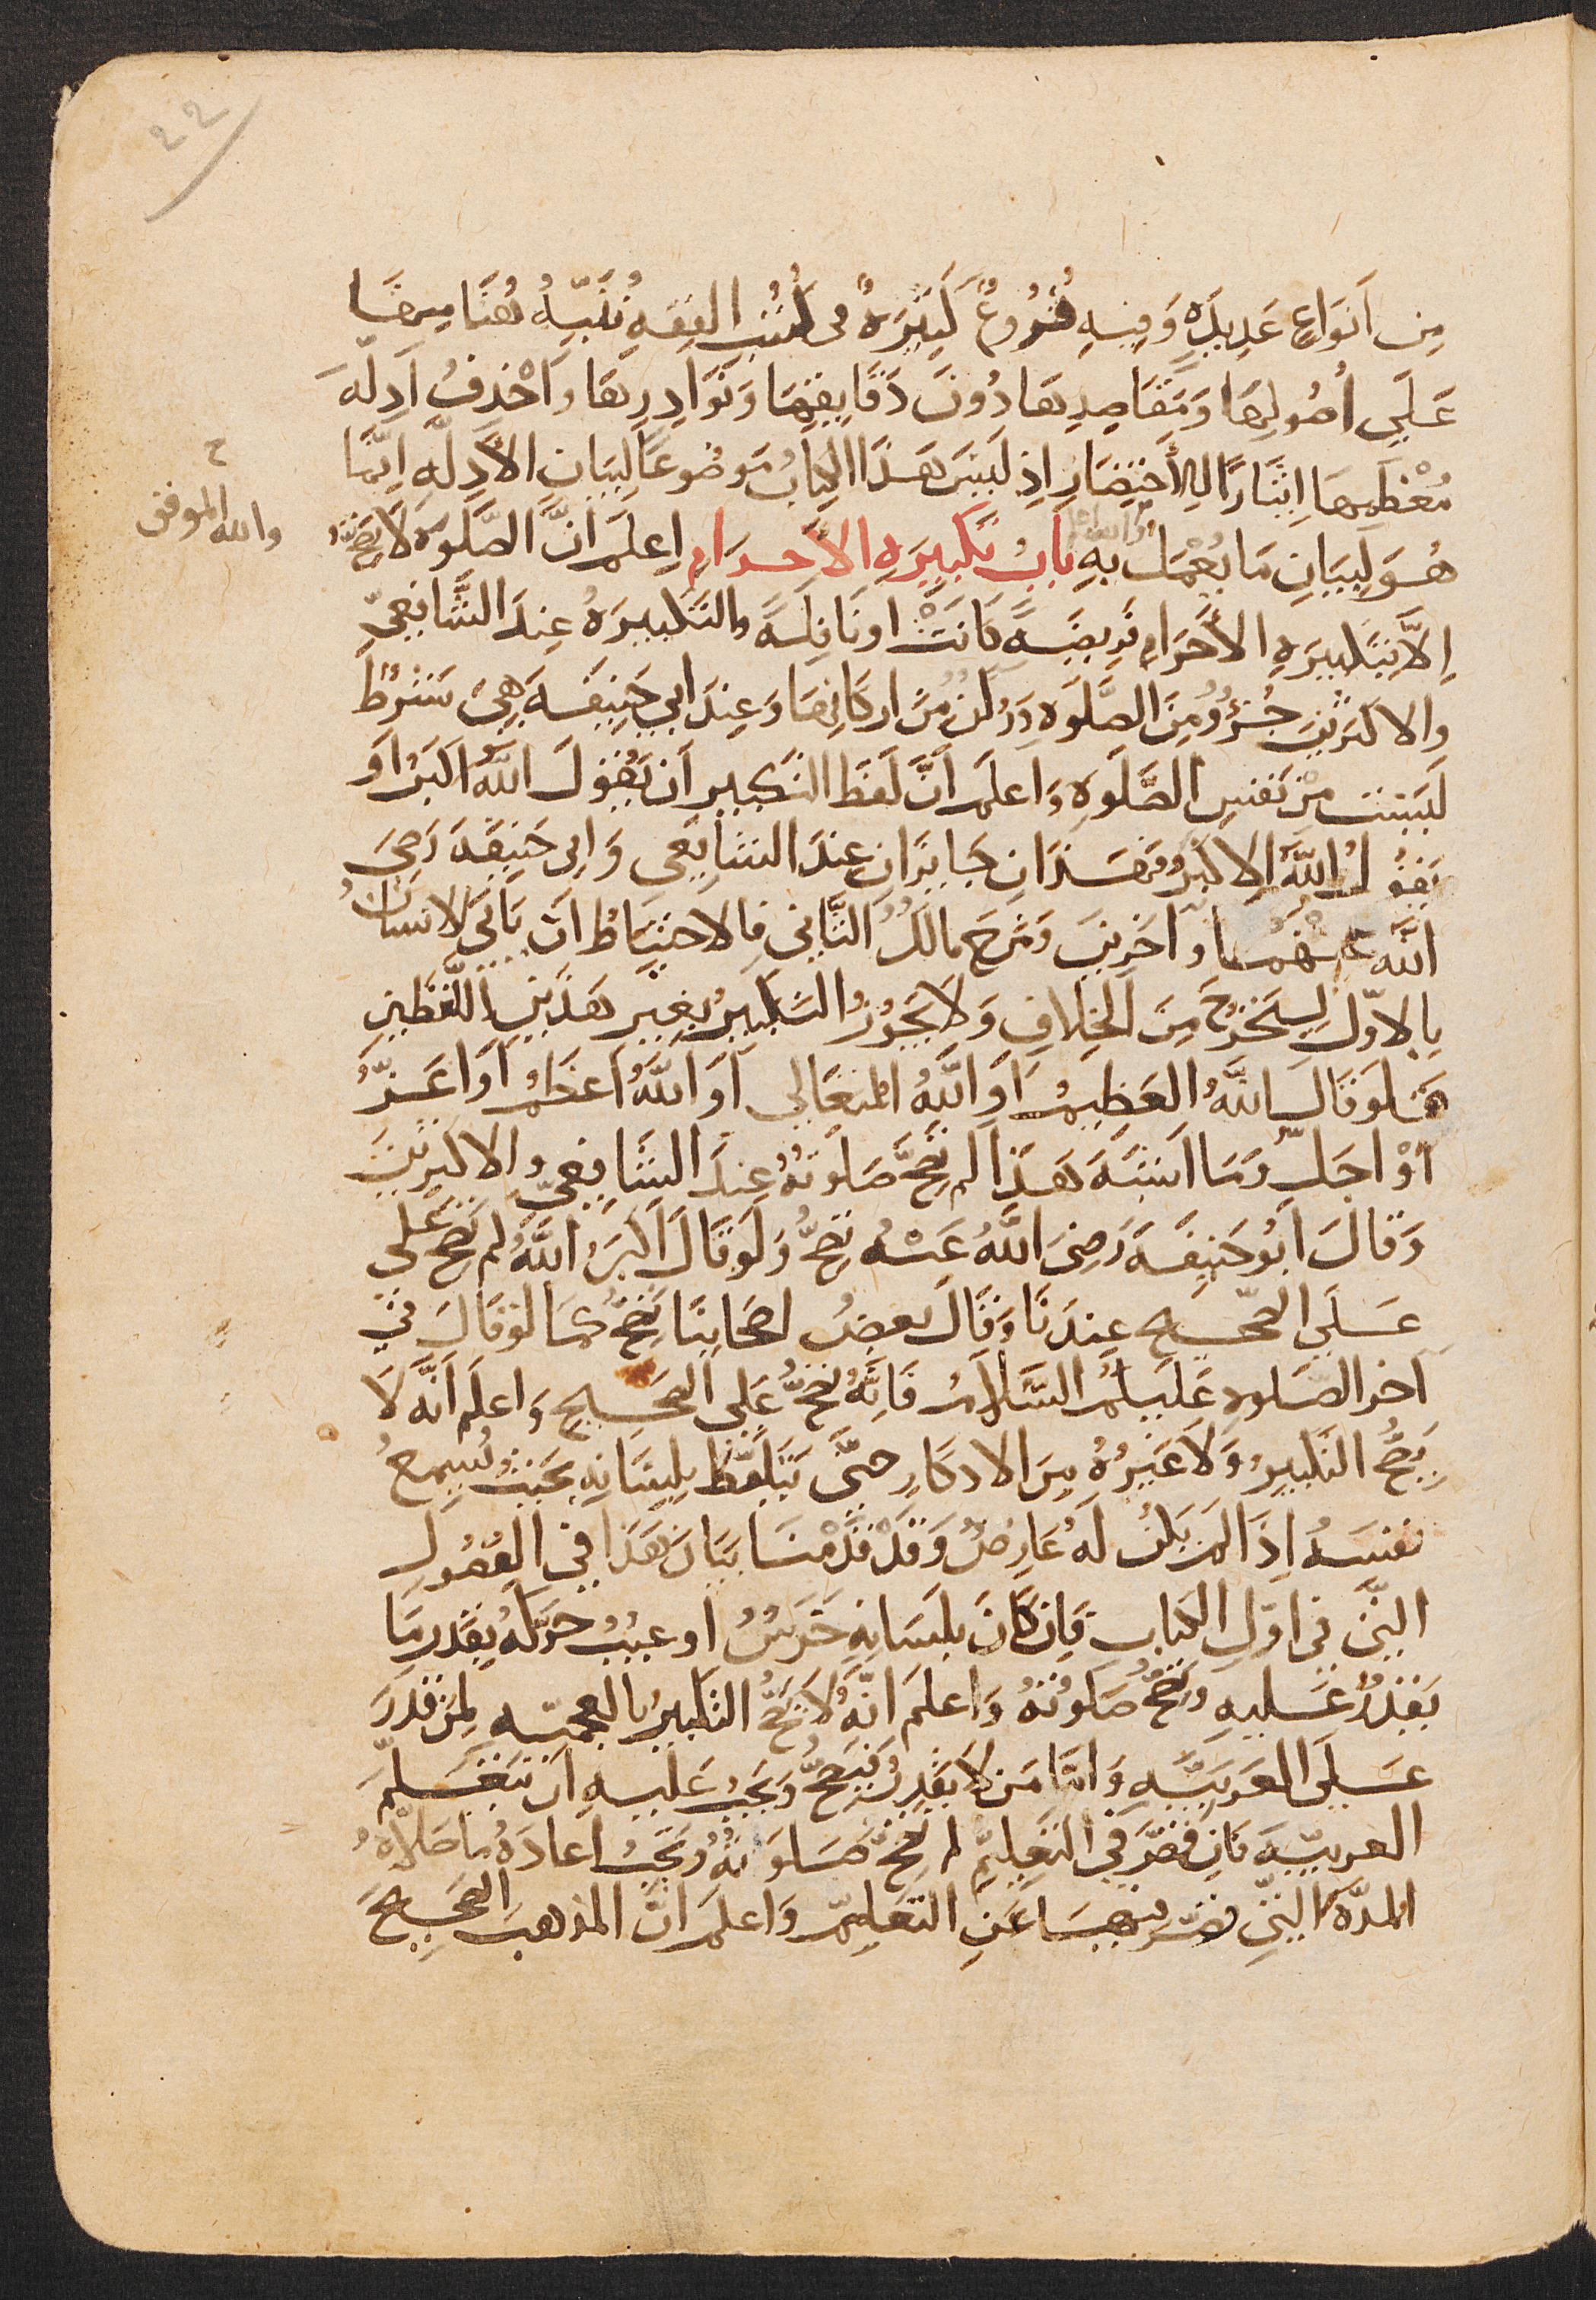 ٢٢
مِن اَنوَاعٍ عَدِيدَةٍ وَفِيهِ فُرُوعٌ كَثِيرَةٌ في كُتُبِ الفِقهِ نُنَبِّهُ هُنَا مِنهَا
عَلَى اُصُولِهَا وَمَقَاصِدِهَا دُونَ دَقَايِقِهَا وَنَوَادِرِهَا وَاَحْذِفُ اَدِلَّة
مُعْظَمِهَا اِيثَارًا لِلاِخْتِصَارِ اِذ لَيسَ هَذَا الكِتَابُ مَوضُوعًا لِبَيَانِ الاَدِلَّةِ اِنَّمَا
هُوَ لِبَيَانِ مَا يُعْمَلُ بِهِ بَابُ تَكْبِيرَةِ الاِحْرَامِ اِعلَم اَنَّ الصَّلَوةَ لَا تَصِحُّ
والله الموفق
اِلَّا بِتَكبِيرَةِ الاِحْرَامِ فَرِيضَةً كَانَتْ او نَافِلَةً والتَكبِيرَةُ عِندَ الشَّافِعِيِّ
والاكثَرِينَ جُزْؤٌ مِنَ الصَّلَوةِ وَرُكنٌ مِن اركَانِهَا وَعِندَ ابي حَنِيفَةَ هِيَ شَرطٌ
لَيسَت مِنْ نَفسِ الصَّلَوةِ وَاعلَم اَنَّ لَفظَ التَكبِيرِ اَن يَقُولَ اللّهُ اكبَرُ اَو
يَقُولُ اللّهُ الاكبَرُ فَهَذَانِ جَايزَانِ عِندَ الشَافِعِي وَابي حَنِيفَةَ رَضِيَ
اللّه عَنْهُمَا وآخَرِينَ وَمَنَعَ مالكُ الثَّانِي فالاحتِيَاطُ اَن يَاتِيَ الانسَانُ
بِالاوَّلِ لِيَخرُجَ مِنَ الخِلَافِ وَلَا يَجُوزُ التَكبِيرُ بِغَيرِ هَذَينِ اللَّفظَينِ
فَلَو قَالَ اللّهُ العَظِيمُ اَوِ اللّهُ المتعَالي اَوِ اللّهُ اعظَمُ اَو اَعَزُّ
اَوْ اجَلُّ وَمَا اشبَهَ هَذَا لم تَصِحَّ صَلَوتُهُ عِندَ الشَّافِعِيِّ والاكثَرِينَ
وَقَالَ اَبُو حَنِيفَةَ رَضِيَ اللّهُ عَنْهُ تَصِحُّ وَلَو قَالَ اكبَرُ اللّهُ لم تَصِحَّ عَلَى
عَلَى الصَّحِيحِ عِندَنَا وَقَالَ بعضُ اصحَابِنَا تَصِحُّ كَمَا لَو قَالَ في
آخر الصَّلوةِ عَلَيكُم السَّلَامُ فَاِنَّهُ تَصِحُّ عَلَى الصَحِيحِ وَاعلَم اَنَّه لَا
يَصِحُّ التَكبِيرُ وَلَا غَيرُهُ مِنَ الاذكَارِ حتَّى يَتَلَفَّظَ بِلِسَانِهِ بحَيثُ يُسمِعُ
نفسَهُ اِذَا لَم يَكُن لَهُ عَارِضٌ وَقَد قَدَّمْنَا بَيَانَ هَذَا فِي الفُصُولِ
الَّتِي فِي اوَّلِ الكتَابِ فَاِن كَانَ بلِسَانِهِ خَرَسٌ او عَيبٌ حَرَّكَهُ بِقَدرِ مَا
يَقدِرُ عَلَيهِ وَتَصِحُّ صَلَوتُهُ وَاعلَم انَّهُ لَا تَصِحُّ التَكبِيرُ بالعجميّةِ لِمَن قَدَرَ
عَلَى العَرَبِيَّةِ وَامَّا مَن لَا يَقدِرُ فَيَصِحُّ وَيَجِبُ عَلَيهِ اَن يَتَعَلَّمَ
العَرَبِيَّةَ فَاِن قَصَّرَ فِي التَعَلُّمِ لم تَصِحَّ صَلَوتُهُ وَتَجِبُ اعَادَةُ ما صَلَّاهُ
المدَّةَ الَّتِي قَصَّرَ فِيهَا عَنِ التَعَلُّمِ وَاعلَم اَنَّ المَذهبَ الصَحِيحَ